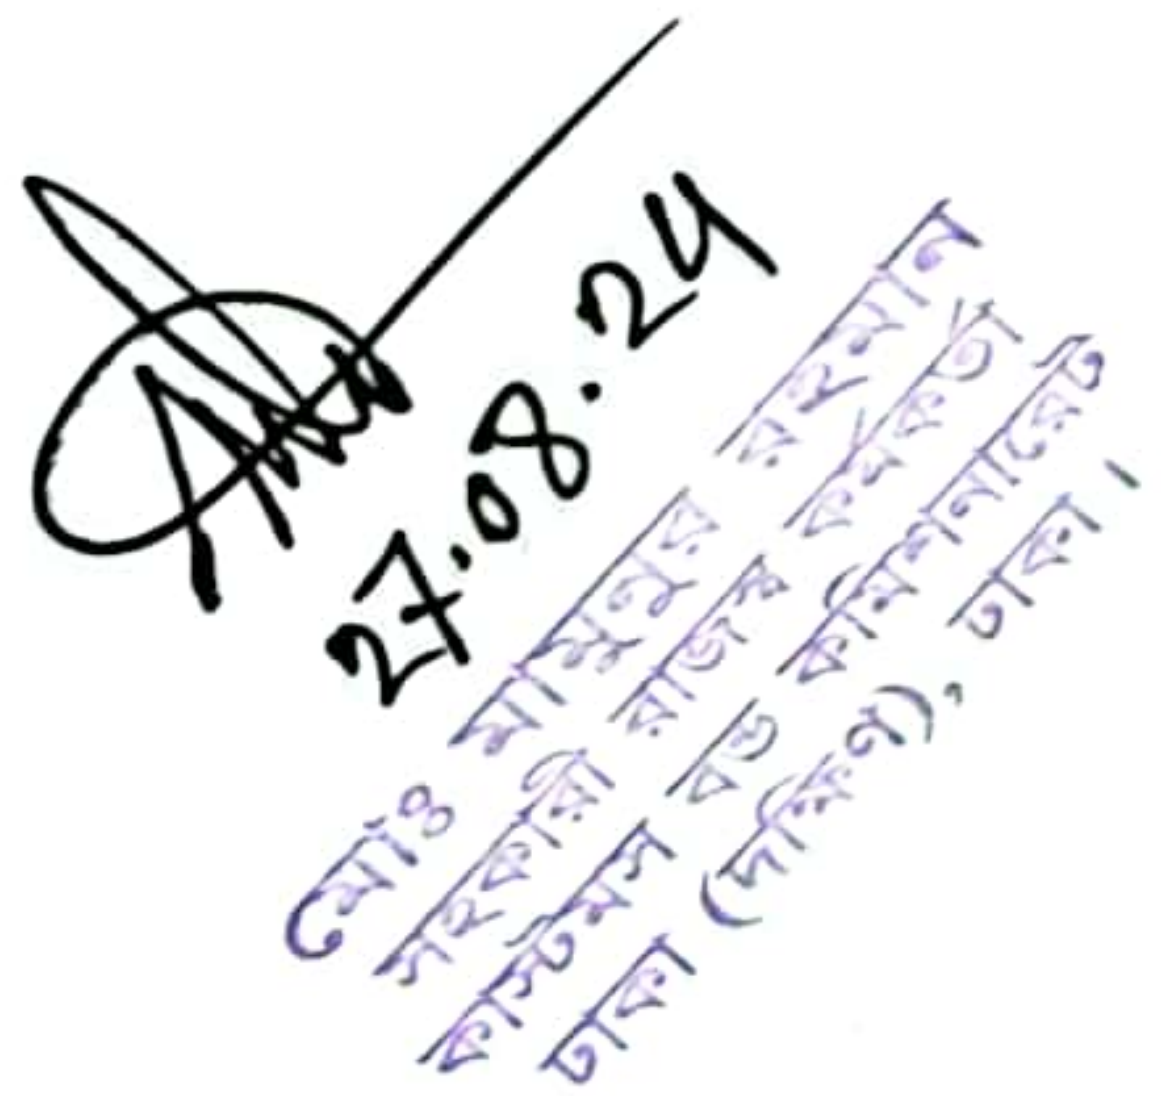 27.08.24
মোঃ মামুনুর রহমান
সহকারী রাজস্ব কর্মকর্তা
কাস্টমস বন্ড কমিশনারেট
ঢাকা (দক্ষিণ), ঢাকা।